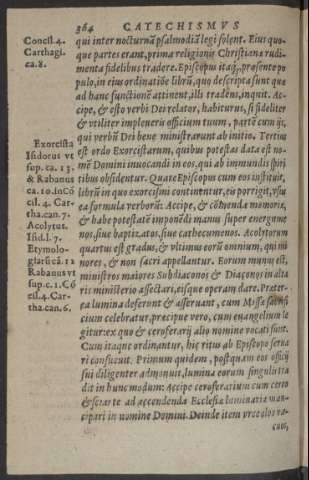 364 CATECHISMVS
Concil. 4.
Carthagi.
ca. 8.
Exorcista
Isidorus vt
sup. ca. 13.
& Rabanus
ca. 10. in Cō
cil. 4. Car-
tha. can. 7.
Acolytus.
Isid. l. 7.
Etymolo-
giarū cā. 12
Rabanus vt
sup. c. 1. Cō
cil. 4. Car-
tha. can. 6.
qui inter nocturnā psalmodiā legi solent. Eius quo-
que partes erant, prima religionis Christianæ rudi-
menta fidelibus tradere. Episcopus itaq;, præsente po
pulo, in eius ordinatiōe librū, quo descripta sunt quæ
ad hanc functionē attinent, illi tradēs, inquit. Acci-
pe, & esto verbi Dei relator, habiturus, si fideliter
& vtiliter impleueris officium tuum, partē cum ijs,
qui verbū Dei bene ministrarunt ab initio. Tertius
est ordo Exorcistarum, quibus potestas data est no-
mē Domini inuocandi in eos, qui ab immundis spiri
tibus obsidentur. Quare Episcopus cum eos instituit,
librū in quo exorcismi continentur, eis porrigit, vsu
ea formula verborū: Accipe, & cōmenda memoriæ,
& habe potestatē imponēdi manus super energume
nos, siue baptizatos, siue cathecumenos. Acolytorum
quartus est gradus, & vltimus eorū omnium, qui mi
nores, & non sacri appellantur. Eorum munus est,
ministros maiores Subdiaconos & Diaconos in alta
ris ministerio assectari, eisque operam dare. Præter-
ea lumina deferunt & asseruant, cum Missæ sacrifi
cium celebratur, præcipue vero, cum euangelium le
gitur: ex quo & ceroferarij alio nomine vocati sunt.
Cum itaque ordinantur, hic ritus ab Episcopo serua
ri consueuit. Primum quidem, postquam eos officij
sui diligenter admonuit, lumina eorum singulis tra
dit in hunc modum: Accipe ceroferarium cum cereo
& scias te ad accendenda Ecclesiæ luminaria man-
cipari in nomine Domini. Deinde item vrceolos va-
cuos,